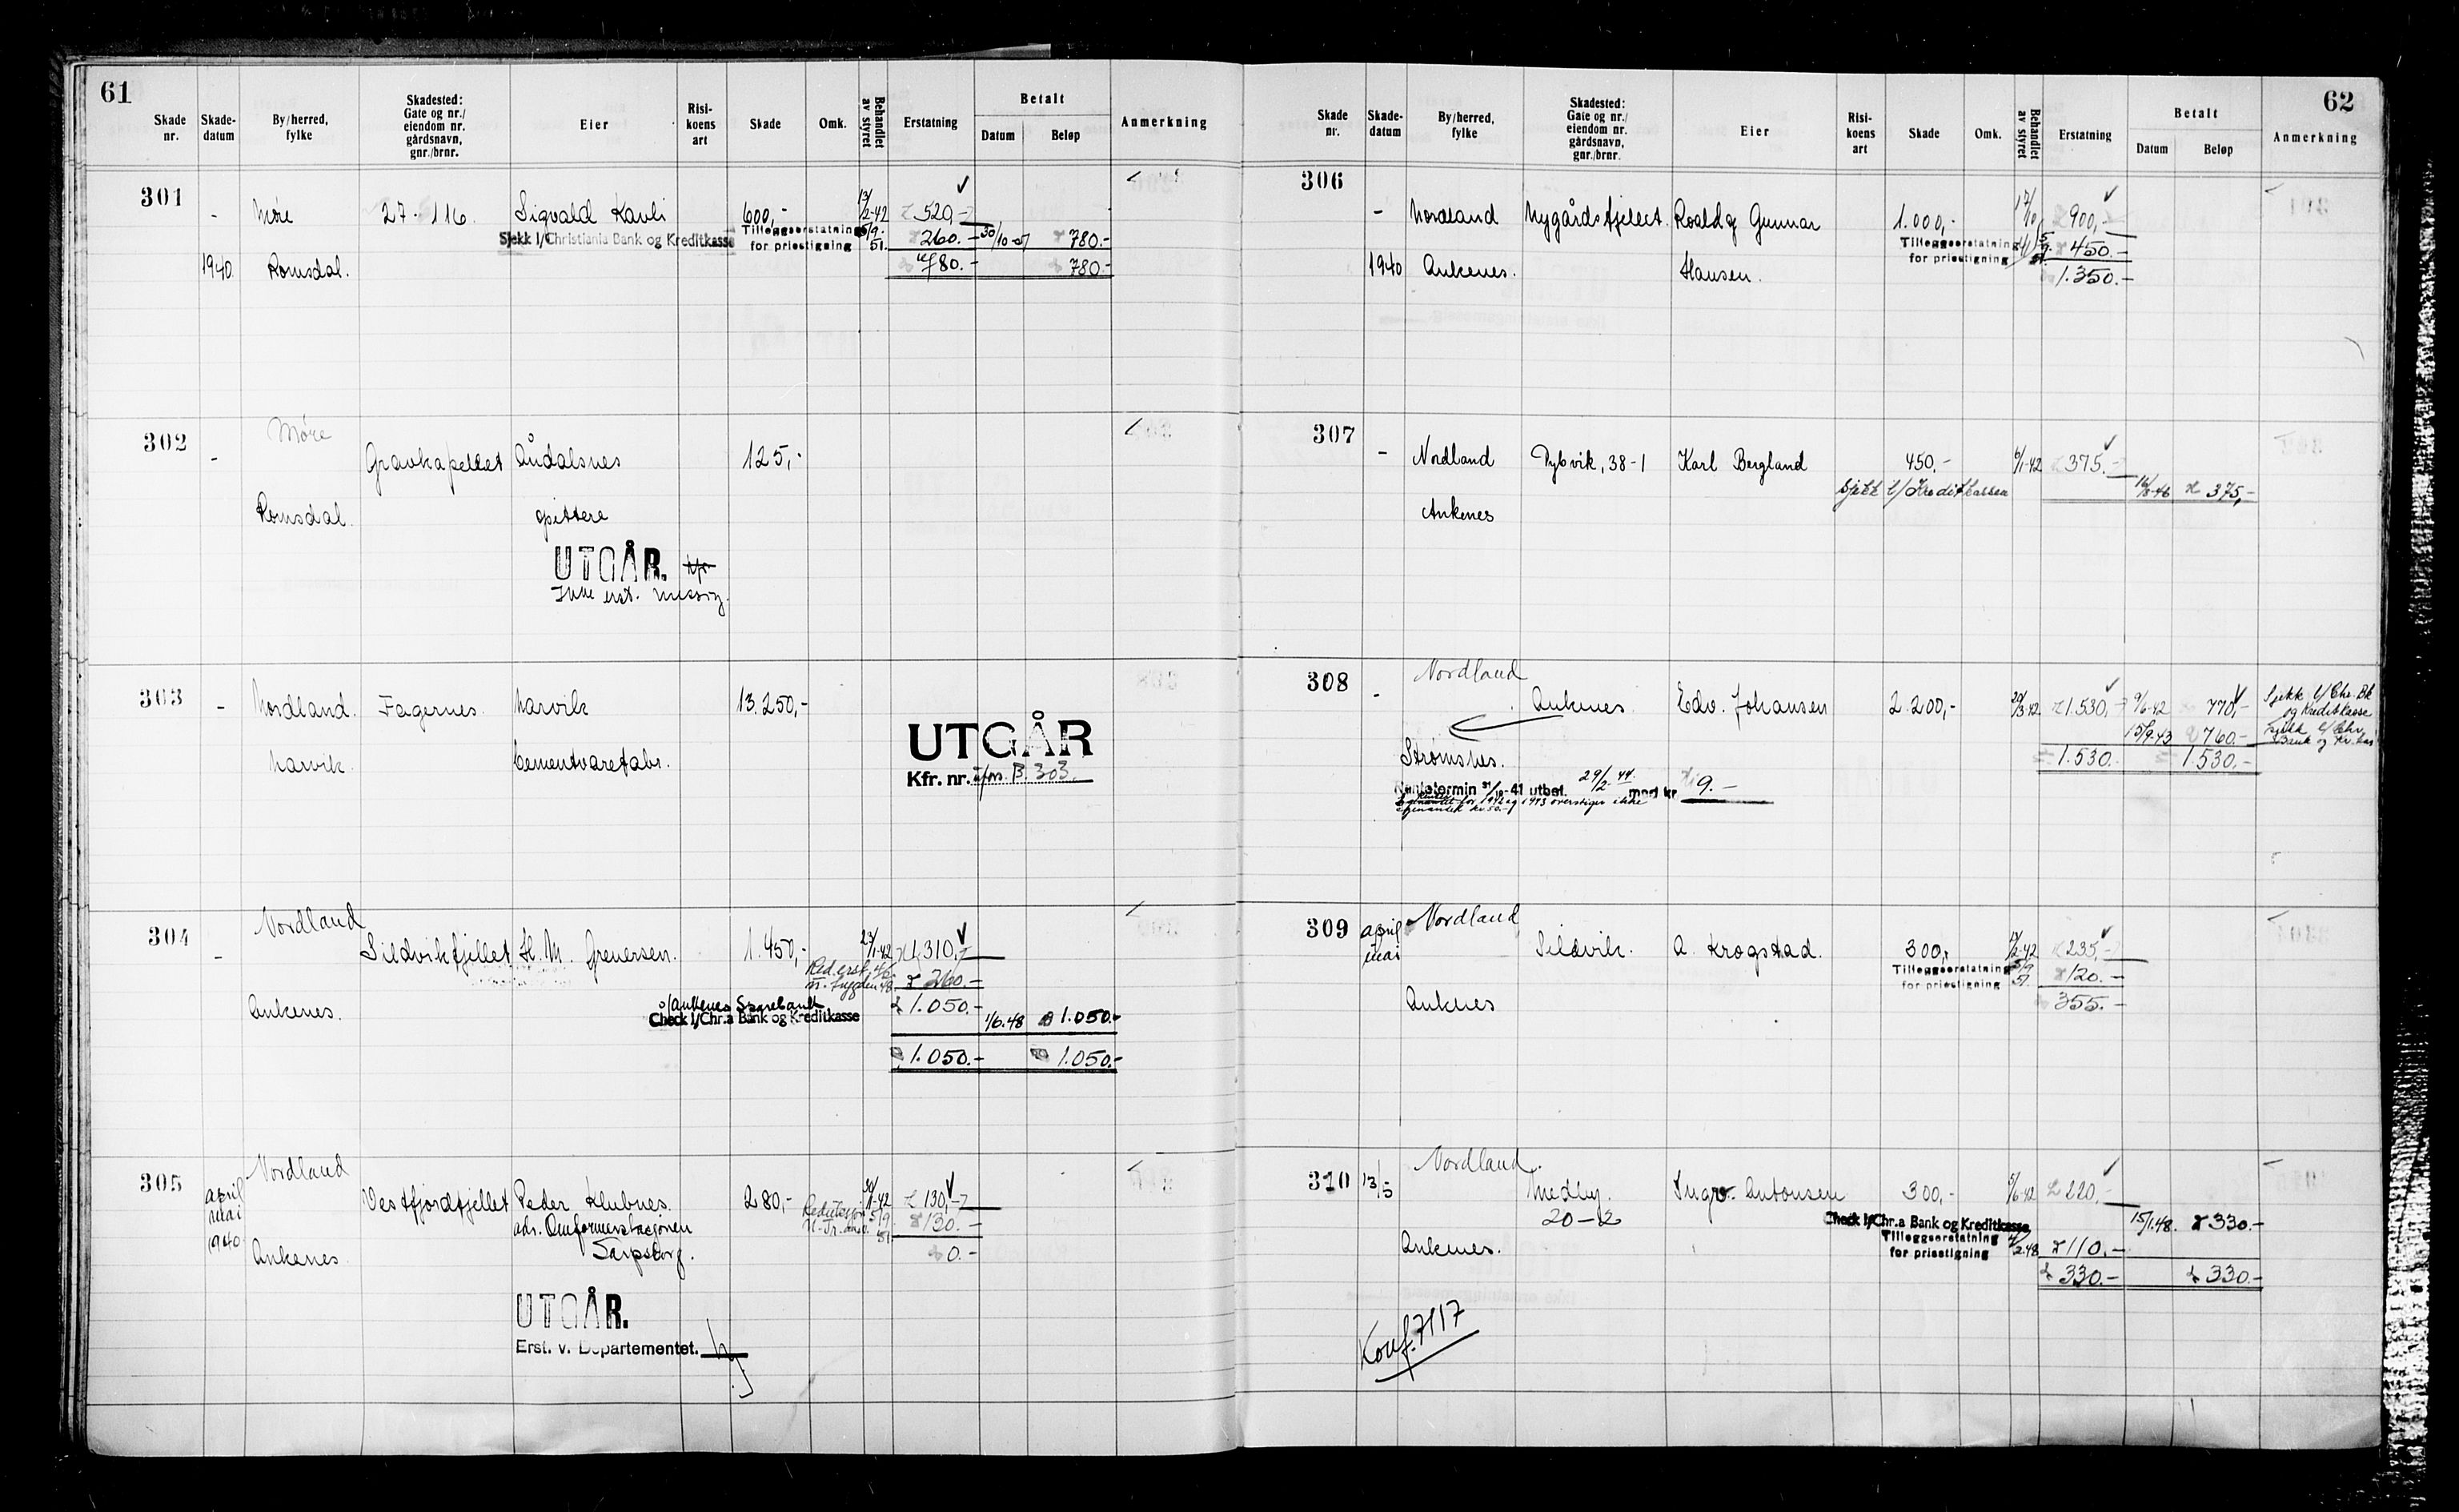 61
Skade nr. Skade-datum By/herred, fylke Skadested: Gate og nr./ eiendom nr. gårdsnavn, gnr./brnr. Eier Risi-koens art Skade Omk. Behandlet av styret Erstatning Betalt Datum Beløp Anmerkning
301 - Møre 27-116 Sigvald Kavli 600,- 13/2-42 520,-
Sjekk l/Christiania Bank og Kreditkasse Tilleggserstatning for prisstigning 5/9-51. 260.- 30/10-51 780.-
1940 Romsdal. 780.- 780.-
302 Møre
- Gravkapellet Åndalsnes 125,-
Romsdal.
UTGÅR.
Ikke erst.
303 - Nordland. Fagernes Narvik 13.250,-
UTGÅR
Narvik Cementvarefabr.
Kfr. nr. B. 303
304 Nordland
- Sildvikfjellet H. M. Grenersen. 1.450,- 23/1-42 1.310,-
260.-
Ankenes. o/Ankenes Sparebank 1.050.-
Check l/Chr.a Bank og Kreditkasse 1/6.48 1.050.-
1.050.- 1.050.-
305 Nordland
april mai 1940 Vestfjordfjellet Peder Klubnes. 280,- 30/1-42 130,-
adr. Omformerstasjonen Reduksjon 5/9 51 130.-
Ankenes Sarpsborg. 0.-
UTGÅR.
Erst. v. Departementet.
62
Skade nr. Skade-datum By/herred, fylke Skadested: Gate og nr./ eiendom nr. gårdsnavn, gnr./brnr. Eier Risi-koens art Skade Omk. Behandlet av styret Erstatning Betalt Datum Beløp Anmerkning
306
- Nordland Nygårdsfjellet. Roald og Gunnar 1.000,- 900,-
Tilleggserstatning for prisstigning 450.-
1940 Ankenes. Hansen. 1.350.-
307
- Nordland Dybvik, 38-1 Karl Bergland 450.- 6/1-42 375.-
sjekk l/Kreditkassen 16/8-46 375,-
Ankenes
308 Nordland
- Ankenes Edv. Johansen 2.200,- 20/3-42 1.530,- 9/6-42 770,- Sjekk l/Chr. Bk og Kreditkasse
15/9-43 760.- sjekk l/Chr. Bank og Kr.kas
Strømsnes. 1.530. 1.530,-
Rentetermin 31/10-41 utbet. 29/2 44. med kr 9.-
for 1942 og 1943 overstiger ikke
309 Nordland
april mai Sildvik. A. Krogstad. 300,- 2-42 235,-
Tilleggserstatning for prisstigning 5/9 51 120.-
Ankenes 355.-
310 13/5 Nordland.
Medby. Ingv. Antonsen 300,- 5/6-42 220,-
20-2 Check l/Chr.a Bank og Kreditkasse, 15/1.48. 330.-
Ankenes. Tilleggserstatning for prisstigning 2.48 110,-
330.- 330.-
Konf. 7117